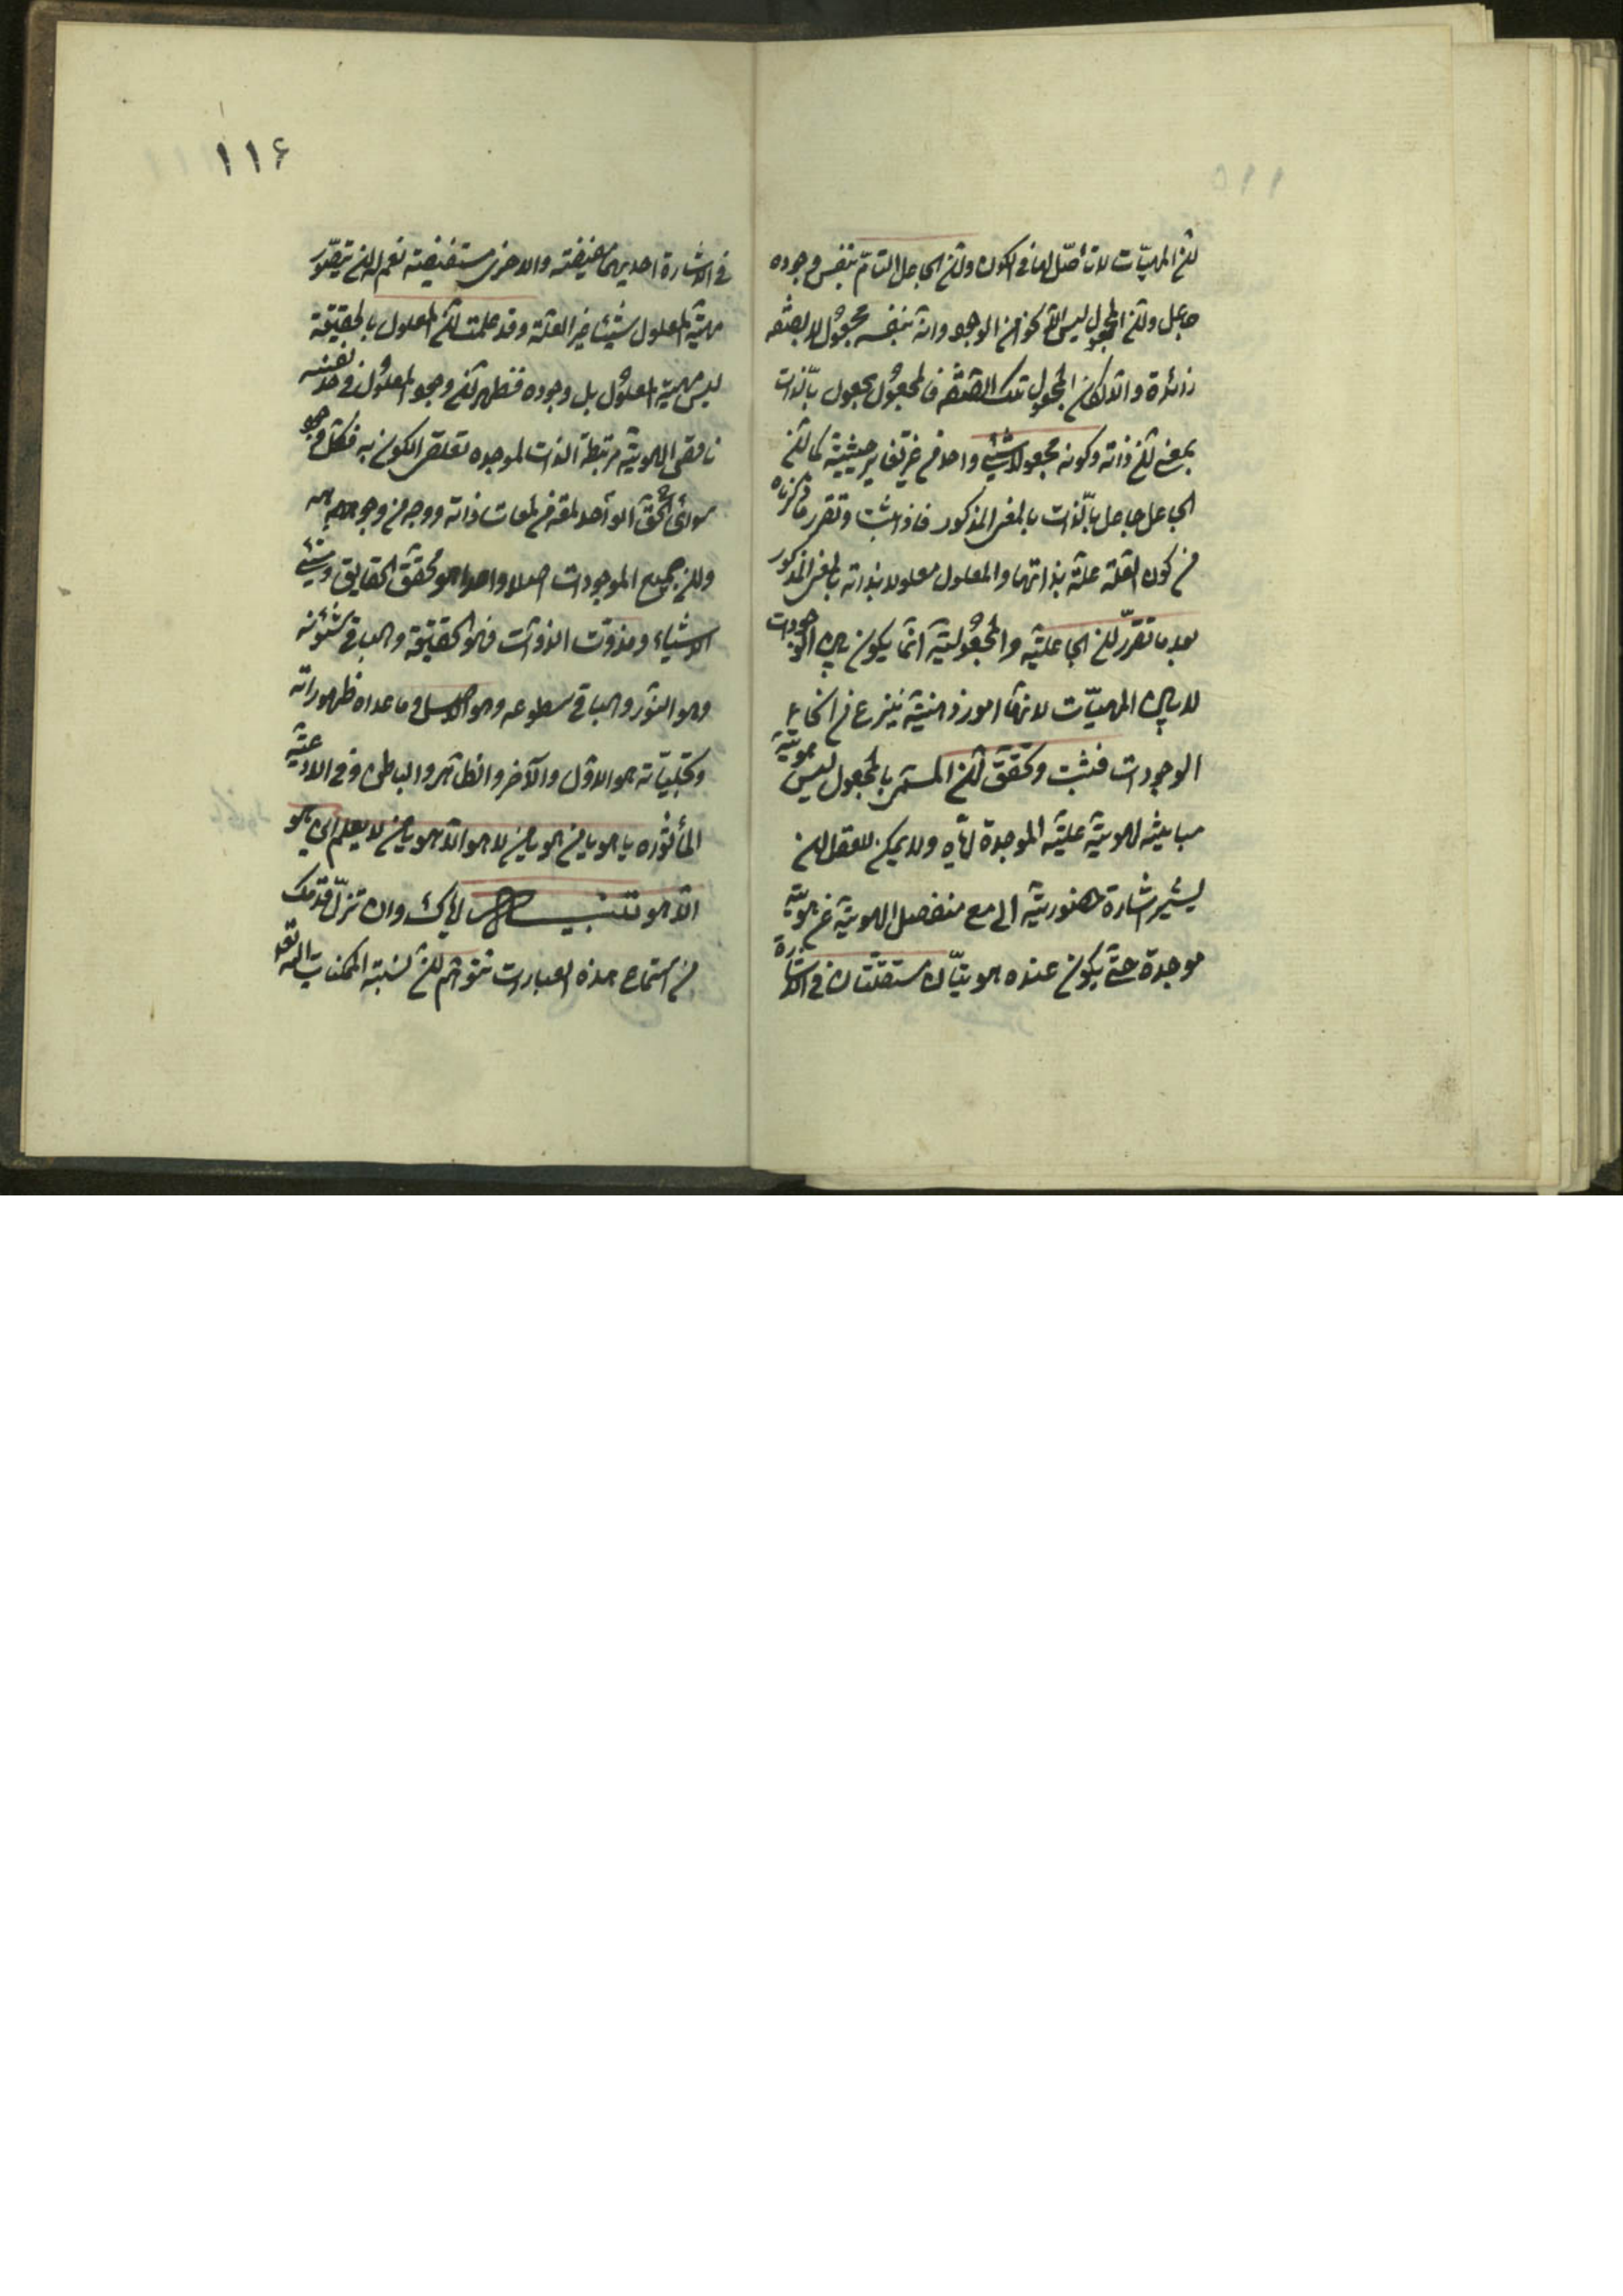 ان المهيّات لا تأصّل لها فى الكون وان الجاعل التامّ بنفس وجوده
جاعل وان المجعول ليس الّا نحوا من الوجود وانّه بنفسه مجعول لا بصفة
زائدة والّا لكان المجعول تلك الصّفة فالمجعول مجعول بالّذات
بمعنى ان ذاته وكونه مجعولا شئ واحد من غير تغاير حيثيّة كما ان
الجاعل جاعل بالّذات بالمعنى المذكور فاذا ثبت وتقرر ما ذكرناه
من كون العلّة علّة بذاتها والمعلول معلولا بذاته بالمعنى المذكور
بعد ما تقرّر ان الجاعليّة والمجعوليّة انّما يكون بين الوجودات
لا بين المهيّات لانها امور ذهنيّة ينتزع من انحاء
الوجودات فثبت وتحقّق ان المسمّى بالمجعول ليس هويّة
مباينة لهويّة علّته الموجدة ايّاه ولا يمكن للعقل ان
يشير اشارة حضوريّة الى مع منفصل الهويّة عن هويّة
موجدة حتّى يكون عنده هويّتان مستقلّتان فى الاشارة
۱۱۶
فى الاشارة احديهما مفيضة والاخرى مستفيضة نعم له ان يتصّور
مهيّة المعلول شيئا غير العلّة وقد علمت ان المعلول بالحقيقة
ليس مهيّة المعلول بل وجوده فظهر ان وجود المعلول فى حدّ نفسه
ناقص الهويّة مرتبطة الذات لموجده تعلقى الكون به فكل وجود
سوى الحقّ الواحد لمعة من لمعات ذاته ووجه من وجوهه
وان لجميع الموجودات اصلا واحدا هو محقّق الحقايق ومشيّئ
الاشياء ومذوّت الذوات فهو الحقيقة والباقى شئونه
وهو النّور والباقى سطوعه وهو الاصل وما عداه ظهوراته
وتجليّاته هو الاوّل والآخر والظاهر والباطن وفى الادعية
المأثوره يا هو يا من هو يا من لا هو الّا هو يا من لا يعلم اين هو
الّا هو تنبيه ايّاك وان تزلّ قدمك
من استماع هذه العبارات وتتوهّم ان نسبة الممكنات اليه تعالى